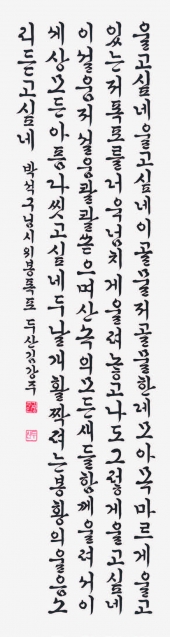 울고싶네 울고싶네 이골물 저골물 한데 모아 목마르게 울고
있는 저 폭포를 더욱 넘치게 울려놓고 나도 그렇게 울고싶네
이 걸웅 저 걸웅 콸콸 쏟으며 산속의 모든 새들 함께 울려 거이
세상 모든 아픔 다 씻고 싶네 두 날개 활짝 펴는 봉황의 울음소
리 듣고싶네 박석구님 시 위봉폭포 두산 김강주